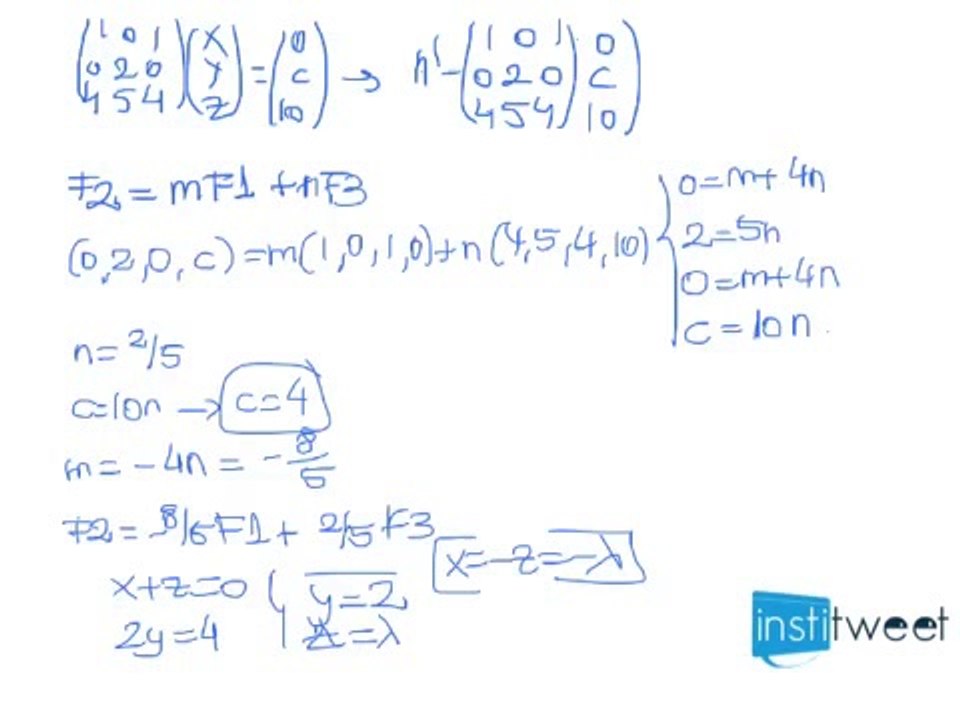 (1 0 1 / 0 2 0 / 4 5 4) (x / y / z) = (0 / c / 10) → n' - (1 0 1 / 0 2 0 / 4 5 4) 0 / c / 10)
F2 = mF1 + nF3
(0,2,0,c) = m(1,0,1,0) + n(4,5,4,10) {
0 = m + 4n
2 = 5n
0 = m + 4n
c = 10n.
n = 2/5
c = 10n → c = 4
m = -4n = -8/5
F2 = -8/5 F1 + 2/5 F3
x + z = 0 { y = 2
2y = 4 z = λ
x = -z = -λ
institweet